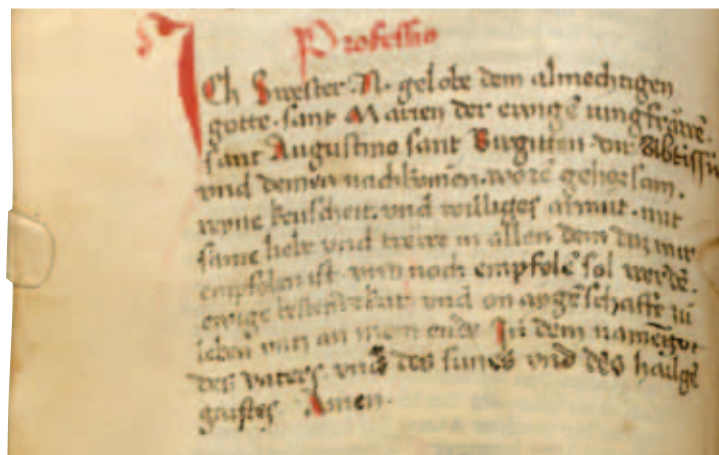 Professio
Ich Swester · N · gelobe dem almechtigen
gotte · sant Marien der ewigē iungfrawē ·
sant Augustino sant Birgitten · dir Abbtissin
vnd deinen nachkomen · wore gehorsam ·
reyne keuscheit · vnd williges armut · mit
same liebe vnd trewe in allen dem daz mir
empfolen ist · vnd noch empfolē sol werdē ·
ewige vnd on aygēschafft zu
leben vntz an mein ende In dem namē got
des vaters · vnd des sunes vnd des hailgē
gaistes · Amen ·